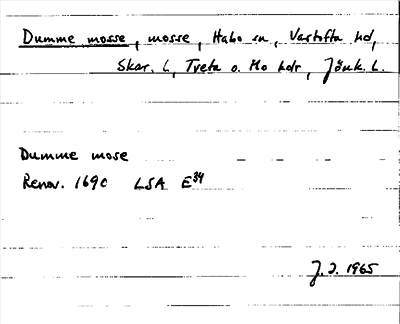 Dumme mosse, mosse, Habo sn, Vartofta hd,
Skar. l, Tveta o. Mo hdr, Jönk. L.
Dumme mose
Renov. 1690 LSA E34
J. J. 1965